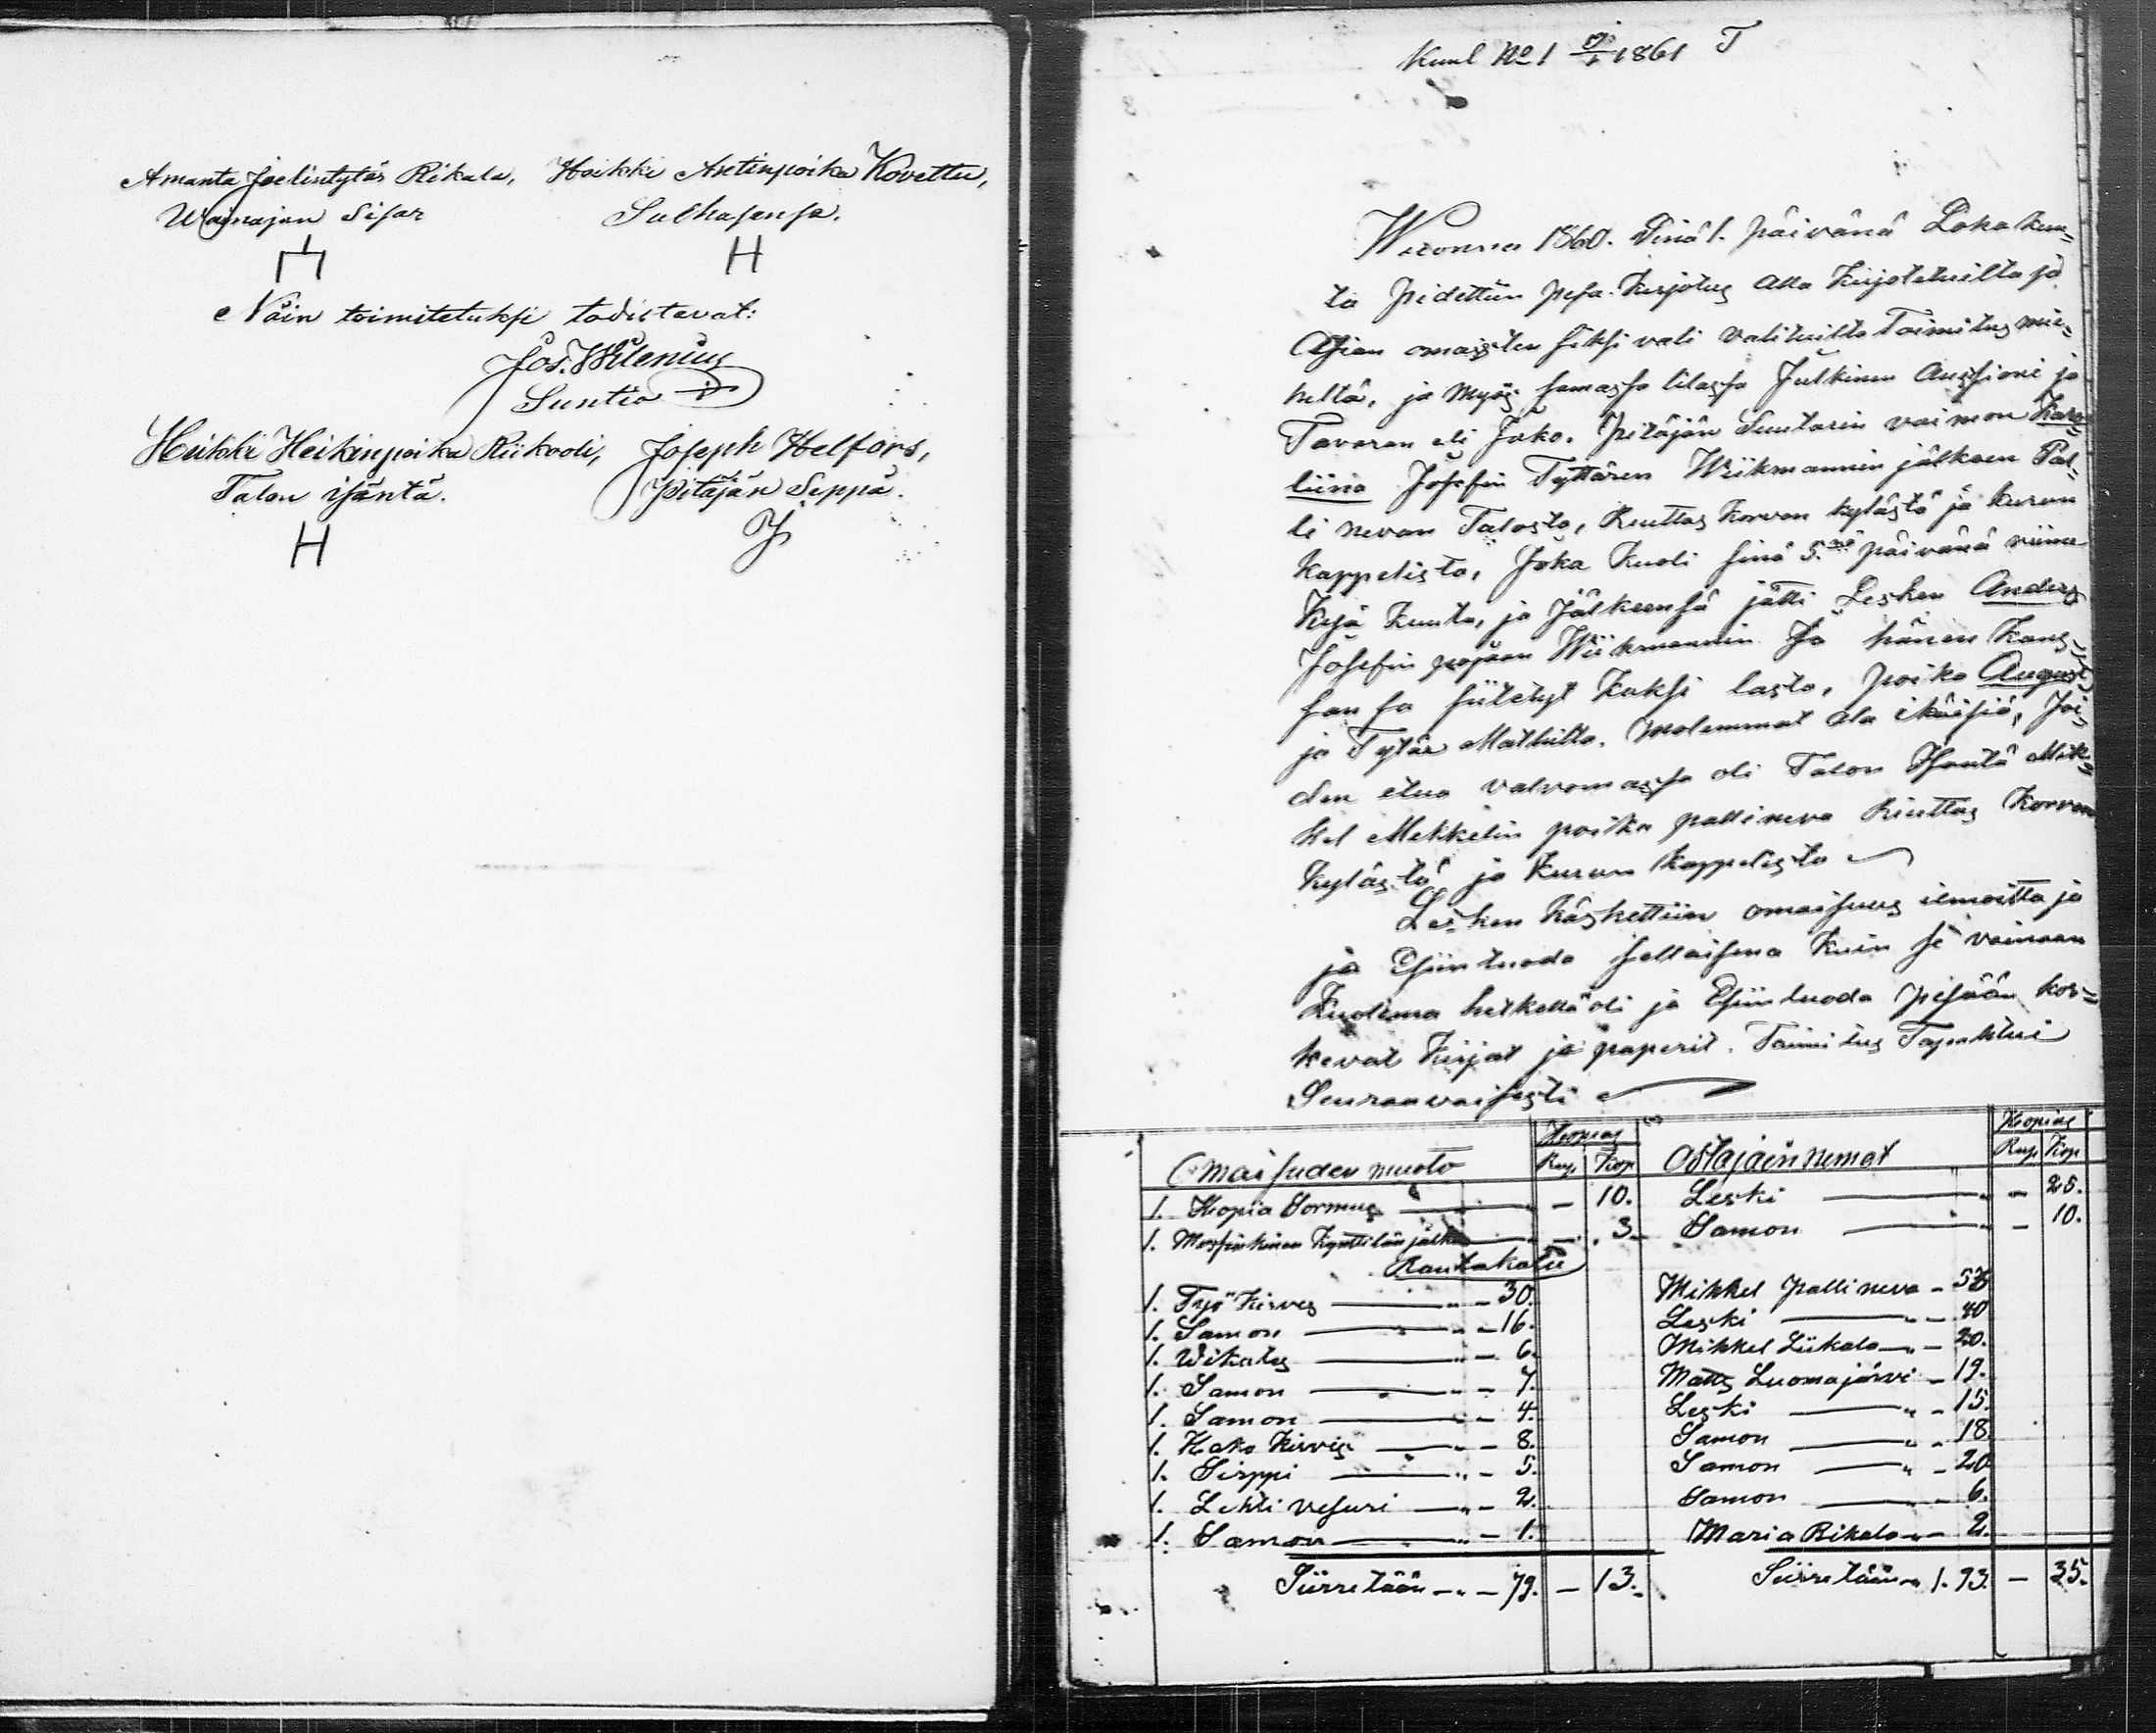 Amanta Joelintytär Rikala, Heikki Antinpoika Kovettu,
Wainajan Sisar Sulhasensa.
H
Näin toimitetuksi todistavat:
Jos. Wilenius
Suntio
Heikki Heikinpoika Riikooli, Joseph Helfors,
Talon isäntä. Pitäjän Seppä.
H J
Kuul No 1 1861 T
Wuonna 1860. Sinä 1. päivänä Lokakuu-
ta Pidettiin pesä-Kirjotus alla Kirjotetuilta ja
Asian omaisten siksi vali valituilta Toimitus mie-
heltä, ja myös samassa tilassa Julkinen Aussioni ja
Tavaran eli Jako. Pitäjän Suutarin vaimon Karo-
liina Josefin Tyttären Wiikmannin jälkeen Pal-
li nevan Talosta, Ruuttas Korvan kylästä ja kurun
Kappelista, Joka Kuoli sinä 5.nä päivänä viime
Kesä Kuuta, ja Jälkeensä jätti Lesken Anders
Josefin pojaan Wiikmannin Ja hänen Kans-
san sa siitetyt Kaksi lasta, poika August
ja Tytär Mathilta. molemmat ala ikäisiä, Joi-
den etua valvomassa oli Talon Isäntä Mik-
kel Mekkelin poika pallineva Riuttas Korvan
kylästä ja Kurun Kappelista
Lesken Käskettiin omaisuus ilmoitta ja
ja Esiin tuoda sellaisena Kuin se vainaan
Kuolema hetkellä oli ja Esiin tuoda pesään kos-
kevat Kirjat ja paperit. Toimitus Tapahtui
Seuraavaisesti
Omaisuden muoto Hopias Ostajain nimet Hopias
Rup. Kop. Rup. Kop.
1. Hopia Sormus - 10. Leski - 25.
1. Messinkinen Kynttilän jalka - 3. Samon - 10.
Rautakalu
1. Työ Kirves - 30. Mikkel Pallineva -
1. Samon - 16. Leski - 40
1. Wikates - 6. Mikkel Liikala - 20.
1. Samon - 7. Matts Luomajärvi - 19.
1. Samon - 4. Leski - 15.
1. Hako Kirvis - 8. Samon - 18.
1. Sirppi - 5. Samon - 20
1. Lehti vesuri - 2. Samon - 6.
1. Samon - 1. Maria Rikala - 2.
Siirretään - 79. - 13. Siirretään 1. 93. - 35.